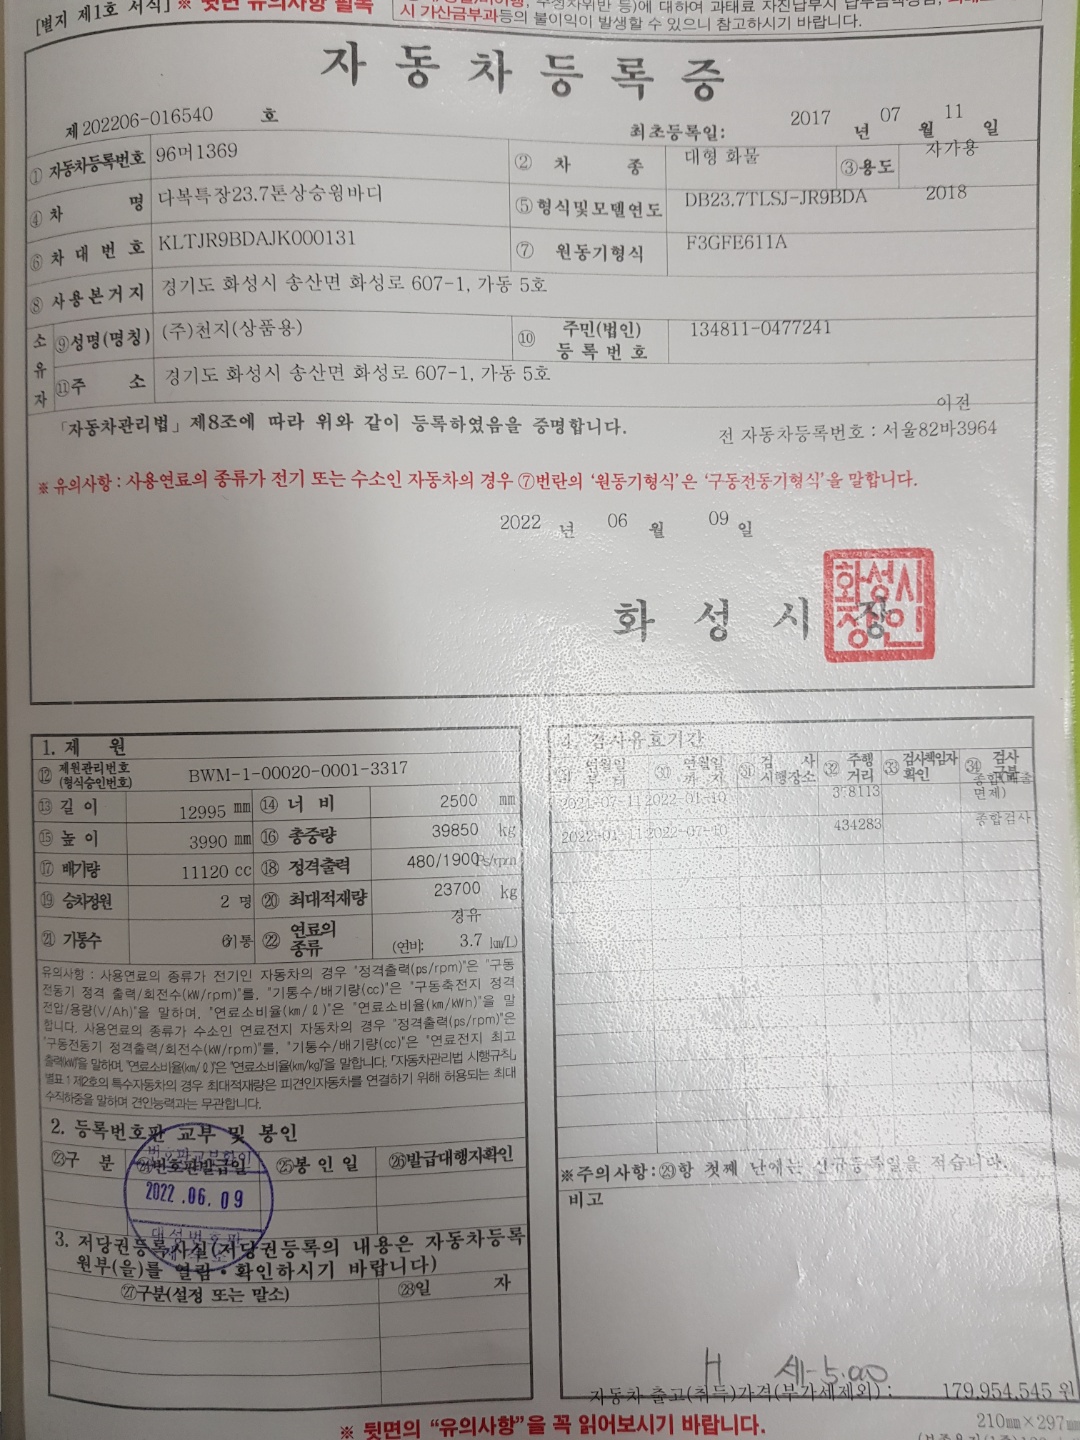 [별지 제1호 서식] ※ 뒷면 유의사항 필독
주정차위반 등)에 대하여 과태료 자진납부시
시 가산금부과등의 불이익이 발생할 수 있으니 참고하시기 바랍니다.
자동차등록증
제 202206-016540 호
최초등록일: 2017 년 07 월 11 일
① 자동차등록번호 96머1369 ② 차 종 대형 화물 ③용도 자가용
④ 차 명 다복특장23.7톤상승윙바디 ⑤ 형식및모델연도 DB23.7TLSJ-JR9BDA 2018
⑥ 차 대 번 호 KLTJR9BDAJK000131 ⑦ 원동기형식 F3GFE611A
⑧ 사용본거지 경기도 화성시 송산면 화성로 607-1, 가동 5호
소유자 ⑨성명(명칭) (주)천지(상품용) ⑩ 주민(법인)등록번호 134811-0477241
⑪주 소 경기도 화성시 송산면 화성로 607-1, 가동 5호
「자동차관리법」 제8조에 따라 위와 같이 등록하였음을 증명합니다.
이전
전 자동차등록번호 : 서울82바3964
※ 유의사항 : 사용연료의 종류가 전기 또는 수소인 자동차의 경우 ⑦번란의 '원동기형식'은 '구동전동기형식'을 말합니다.
2022 년 06 월 09 일
화 성 시 장
화성시장인
1. 제 원
⑫ 제원관리번호 (형식승인번호) BWM-1-00020-0001-3317
⑬ 길 이 12995 mm ⑭ 너 비 2500 mm
⑮ 높 이 3990 mm ⑯ 총중량 39850 kg
⑰ 배기량 11120 cc ⑱ 정격출력 480/1900 Ps/rpm
⑲ 승차정원 2 명 ⑳ 최대적재량 23700 kg
㉑ 기통수 6기통 ㉒ 연료의 종류 경유
(연비: 3.7 km/L)
유의사항 : 사용연료의 종류가 전기인 자동차의 경우 "정격출력(ps/rpm)"은 "구동
전동기 정격 출력/회전수(kW/rpm)"를, "기통수/배기량(cc)"은 "구동축전지 정격
전압/용량(V/Ah)"을 말하며, "연료소비율(km/ℓ)"은 "연료소비율(km/kWh)"을 말
합니다. 사용연료의 종류가 수소인 연료전지 자동차의 경우 "정격출력(ps/rpm)"은
"구동전동기 정격출력/회전수(kW/rpm)"를, "기통수/배기량(cc)"은 "연료전지 최고
출력(kW)"을 말하며, "연료소비율(km/ℓ)"은 "연료소비율(km/kg)"을 말합니다. 「자동차관리법 시행규칙」
별표 1 제2호의 특수자동차의 경우 최대적재량은 피견인자동차를 연결하기 위해 허용되는 최대
수직하중을 말하며 견인능력과는 무관합니다.
2. 등록번호판 교부 및 봉인
㉓구 분 ㉔번호판발급일 ㉕봉 인 일 ㉖발급대행자확인
번호판교부확인
2022.06.09
대성번호판
3. 저당권등록사실(저당권등록의 내용은 자동차등록
원부(을)를 열람·확인하시기 바랍니다)
㉗구분(설정 또는 말소) ㉘일 자
4. 검사유효기간
연월일 부터 ㉚ 연월일 까지 ㉛ 검 사 시행장소 ㉜ 주행 거리 ㉝ 검사책임자 확인 ㉞ 검사 구분
2021-07-11 2022-01-10 378113 종합(배출 면제)
2022-01-11 2022-07-10 434283 종합검사
※주의사항:㉙항 첫째 난에는 신규등록일을 적습니다.
비고
H 세-5.00
자동차 출고(취득)가격(부가세제외) : 179,954,545 원
※ 뒷면의 "유의사항"을 꼭 읽어보시기 바랍니다.
210㎜×297㎜